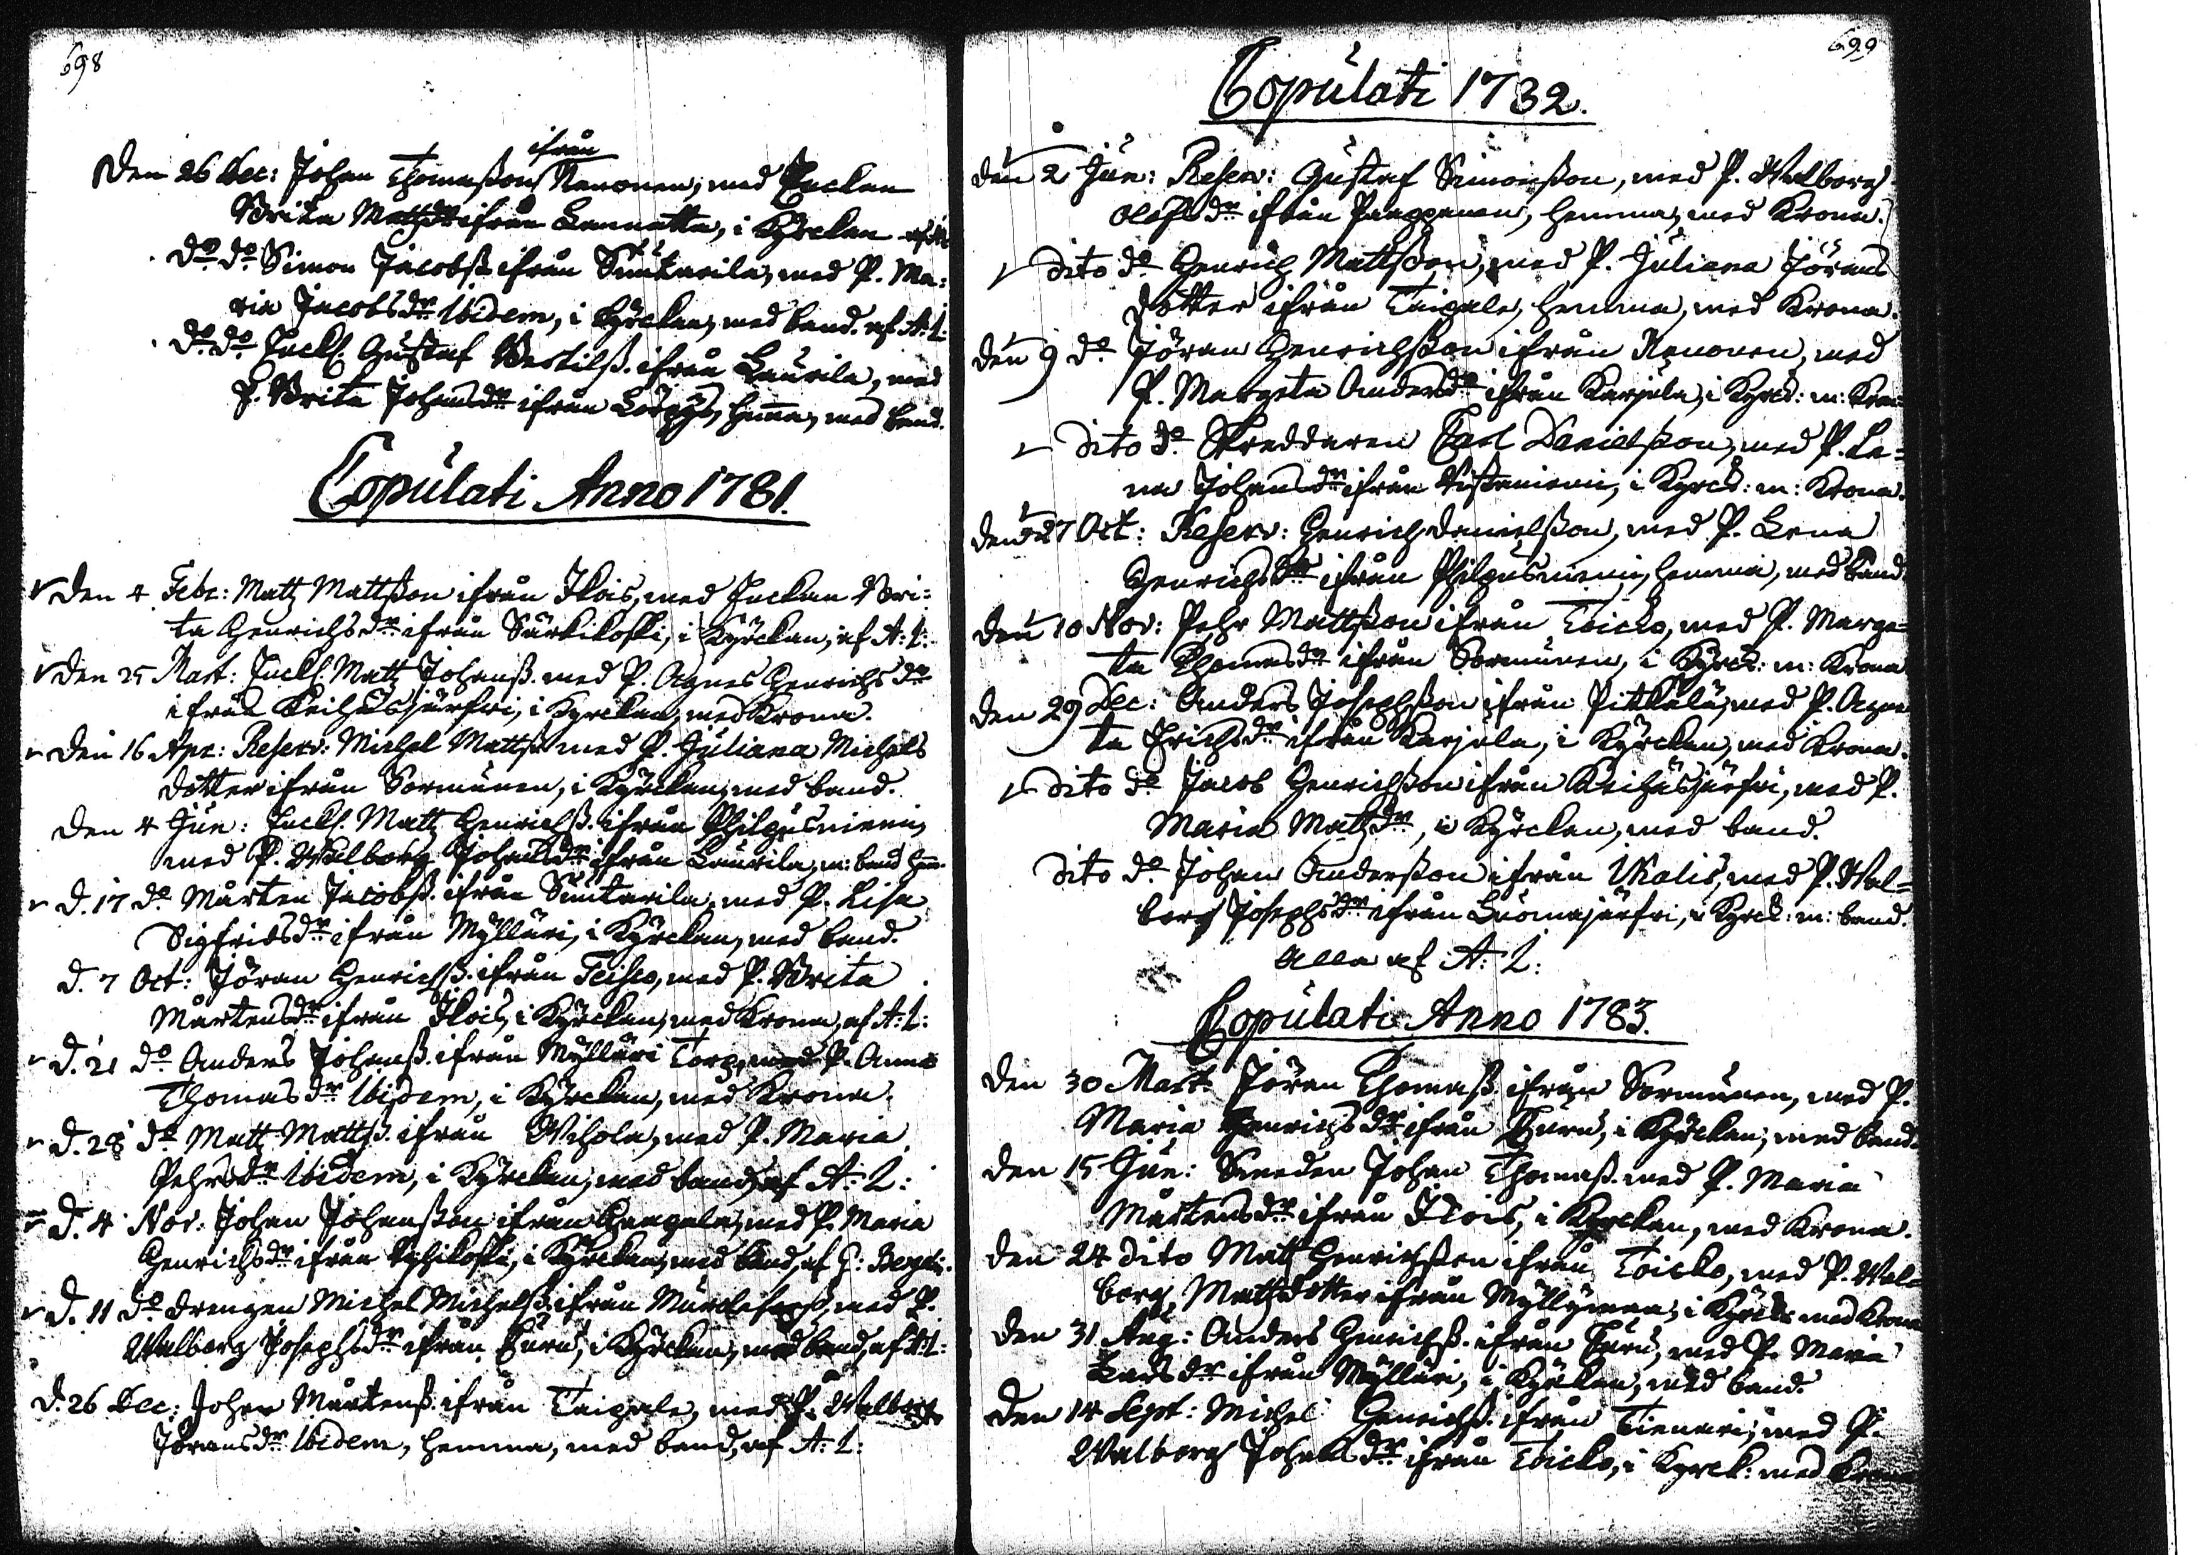 698
ifrån
Den 26 Dec: Johan Thomasson Nenonen, med Enckan
Brita Mattsdr ifrån Lannetta, i Kyrckan af A:L
do do Simon Jacobss. ifrån Suutarila, med P. Ma:
ria Jacobsdr Ibidem, i Kyrckan, med band. af A:L:
do do Enckl. Gustaf Bertilss. ifrån Laurila, med
P. Brita Johansdr ifrån Lörpys, hemma, med band.
Copulati Anno 1781.
Den 4 Febr: Matz Mattsson ifrån Ikois, med Enckan Bri:
ta Henrichsdr ifrån Särkikoski, i Kyrckan, af A:L:
Den 25 Mart: Enckl. Matz Johanss. med P. Agnes Henrichsdr
ifrån Keihäsjärfwi, i Kyrckan, med Krona.
Den 16 Apr: Reserv: Michel Mattss. med P. Juliana Michels
dotter ifrån Sormunen, i Kyrckan, med band.
Den 4 Jun: Enckl. Matz Henrichss. ifrån Philpusniemi,
med P. Walborg Johansdr ifrån Laurila, m: band hem.
D. 17 do Mårten Jacobss. ifrån Suutarila, med P. Lisa
Sigfridsdr ifrån Mylläri, i Kyrckan, med band.
D. 7 Oct: Jöran Henrichss. ifrån Teisco, med P. Brita
Mårtensdr ifrån Ikois, i Kyrckan, med Krona, af A:L:
D. 21 do Anders Johanss. ifrån Mylläri Torp, med P. Anna
Thomasdr Ibidem, i Kyrckan, med Krona.
D. 28 do Matts Mattss. ifrån Wihola, med P. Maria
Pehrsdr Ibidem, i Kyrckan, med band, af A:L:
D. 4 Nov: Johan Johansson ifrån Haapala, med P. Maria
Henrichsdr ifrån Kyhikoski, i Kyrckan, med band, af
D. 11 do Drengen Michel Michelss. ifrån med P.
Walborg Josephsdr ifrån Turu, i Kyrckan, med band, af A:L:
D. 26 Dec: Johan Mårtenss. ifrån Taipale, med P. Walborg
Jöransdr Ibidem, hemma, med band, af A:L:
699
Copulati 1732.
Den 2 Jun: Reserv: Gustaf Simonsson, med P. Walborg
Olofsdr ifrån Paappanen, hemma, med Krona.
Dito do Henrich Mattsson, med P. Juliana Jörans
dotter ifrån Taipale, hemma, med Krona.
Den 9 do Jöran Henrichsson ifrån Nenonen, med
P. Margeta Andersdr ifrån Karjula, i Kyrck: m: Kron
Dito do Skreddaren Carl Danielsson, med P. Le=
na Johansdr ifrån Ristaniemi, i Kyrck: m: Krona.
Den 27 Oct: Reserv: Henrich Danielsson, med P. Lena
Henrichsdr ifrån Philpusniemi, hemma, med band.
Den 10 Nov: Pehr Mattsson ifrån Toicko, med P. Marge=
ta Thomasdr ifrån Sormunen, i Kyrck: m: Krona
Den 29 Dec: Anders Josephsson ifrån Pitkälä, med P. Agne
ta Erichsdr ifrån Karjula, i Kyrckan, med Krona.
Dito do Jacob Henrichsson ifrån Keihäsjärfwi, med P.
Maria Matzdr, i Kyrckan, med band.
Dito do Johan Andersson ifrån Ikalis, med P. Wal=
borg Josephsdr ifrån Luomajärfwi, i Kyrck: m: band.
Alla af A:L:
Copulati Anno 1783.
Den 30 Mart. Jöran Thomass. ifrån Sormunen, med P.
Maria Henrichsdr ifrån Turu, i Kyrckan, med band.
Den 15 Jun: Smeden Johan Thomass. med P. Maria
Mårtensdr ifrån Ikois, i Kyrckan, med Krona.
Den 24 Dito Matz Henrichsson ifrån Toicko, med P. Wal=
borg Matzdotter ifrån Myllymaa, i Kyrck: med Krona
Den 31 Aug: Anders Henrichss. ifrån Turu, med P. Maria
Larsdr ifrån Mylläri, i Kyrckan, med band.
Den 14 Sept: Michel Henrichss. ifrån Tienari, med P.
Walborg Johansdr ifrån Toicko, i Kyrck: med Krona